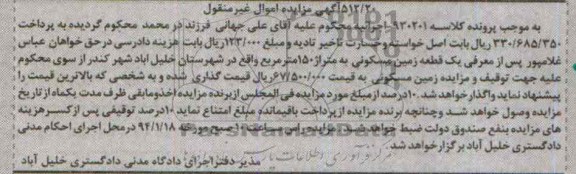 ۵۱۲/۲۰ آگهی مزایده اموال غیرمنقول
به موجب پرونده کلاسه ۹۳۰۲۰۱ محکوم علیه آقای علی جهانی فرزند در محمد محکوم گردیده به پرداخت
۳۳۰/۶۸۵/۳۵۰ ریال بابت اصل خواسته و خسارت تاخیر تادیه و مبلغ ۱۲۳/۰۰۰ ریال بابت هزینه دادرسی در حق خواهان عباس
غلامپور پس از معرفی یک قطعه زمین مسکونی به متراژ ۱۵۰ مترمربع واقع در شهرستان خلیل اباد شهر کندر از سوی محکوم
علیه جهت توقیف و مزایده زمین مسکونی به قیمت ۶۷/۵۰۰/۰۰۰ ریال قیمت گذاری شده و به شخصی که بالاترین قیمت را
پیشنهاد نماید واگذار خواهد شد. ۱۰درصد از مبلغ مورد مزایده فی المجلس از برنده مزایده اخذ و مابقی ظرف مدت یکماه از تاریخ
مزایده وصول خواهد شد و چنانچه برنده مزایده از پرداخت باقیمانده مبلغ امتناع نماید ۱۰درصد توقیفی پس از کسر هزینه
های مزایده بنفع صندوق دولت ضبط خواهد شد. مزایده راس ساعت صبح مورخه ۹۴/۱/۱۸ در محل اجرای احکام مدنی
دادگستری خلیل آباد برگزار خواهد شد
مدیر دفتر اجرای دادگاه مدنی دادگستری خلیل آباد